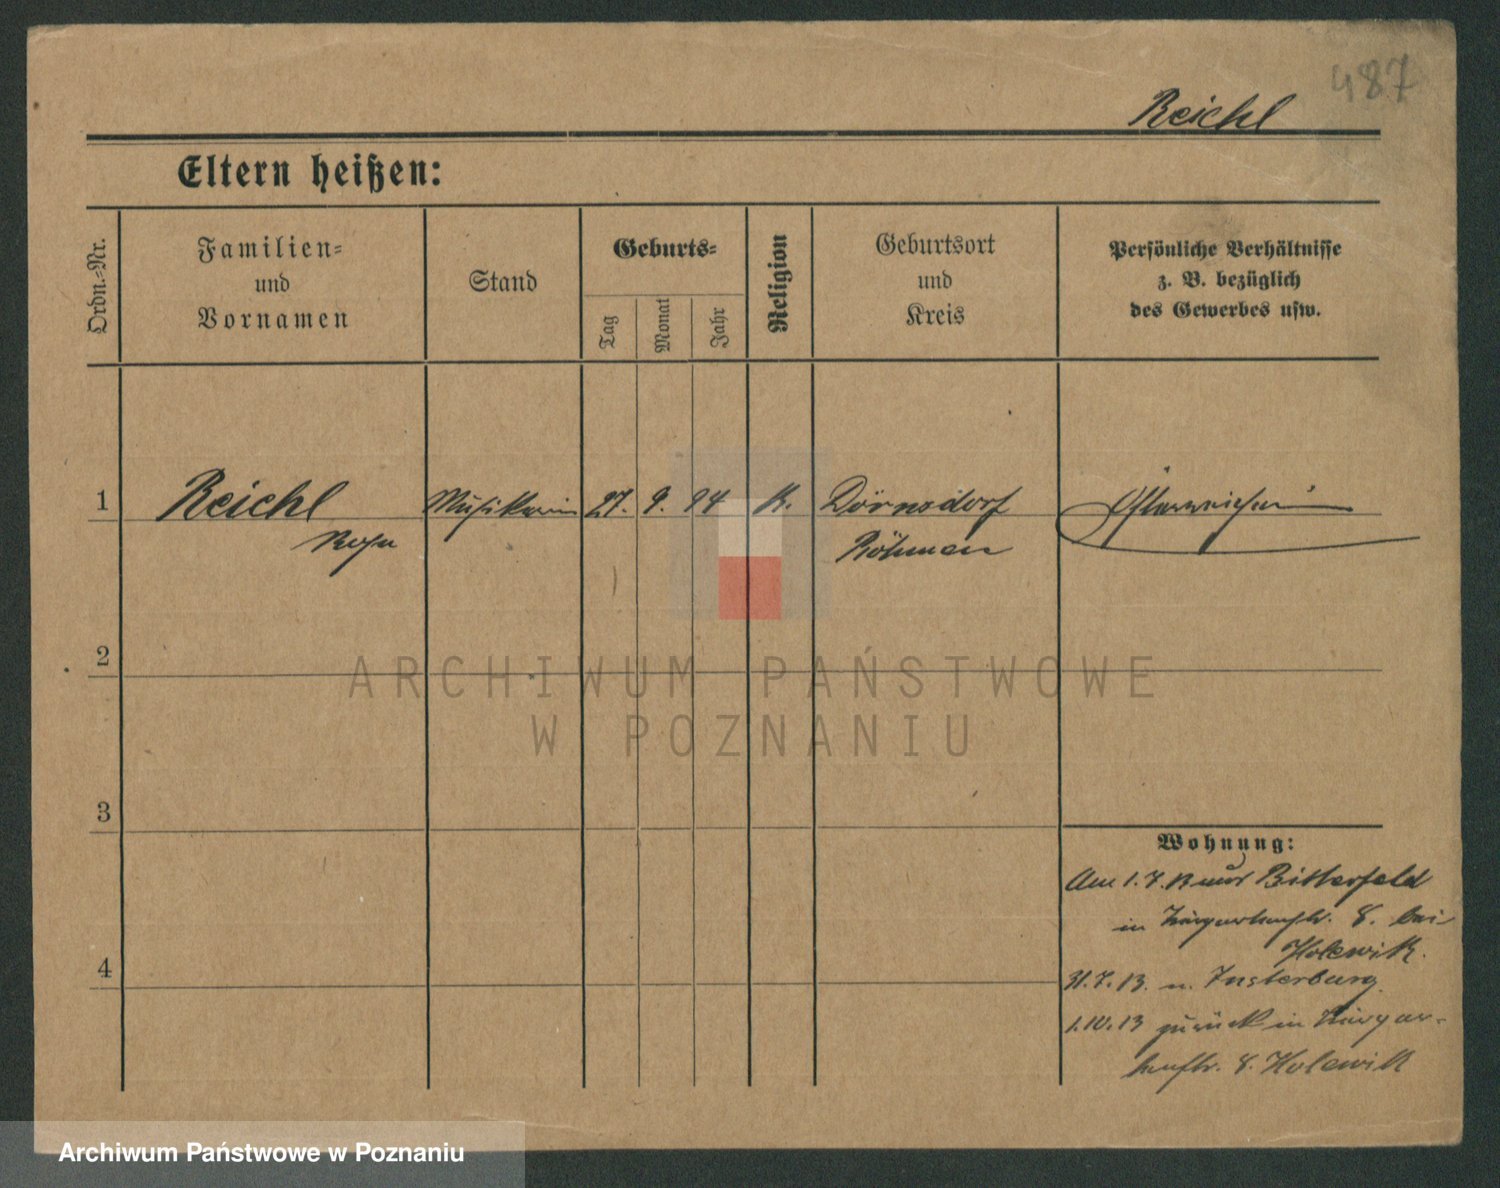 487
Reichl
Eltern heißen:
Ordn.-Nr.
Familien-
und
Vornamen
Stand
Geburts-
Tag
Monat
Jahr
Religion
Geburtsort
und
Kreis
Persönliche Verhältnisse
z. B. bezüglich
des Gewerbes usw.
1
Reichl
Rosa
Musikerin
27. 9. 94
K.
Dörnsdorf
Böhmen
Österreicherin
2
ARCHIWUM PAŃSTWOWE
W POZNANIU
3
Wohnung:
Am 1.7.13 aus Bitterfeld
in 8. bei
Holewik.
4
31.7.13. n. Insterburg.
1.10.13 zurück in
8. Holewik
Archiwum Państwowe w Poznaniu